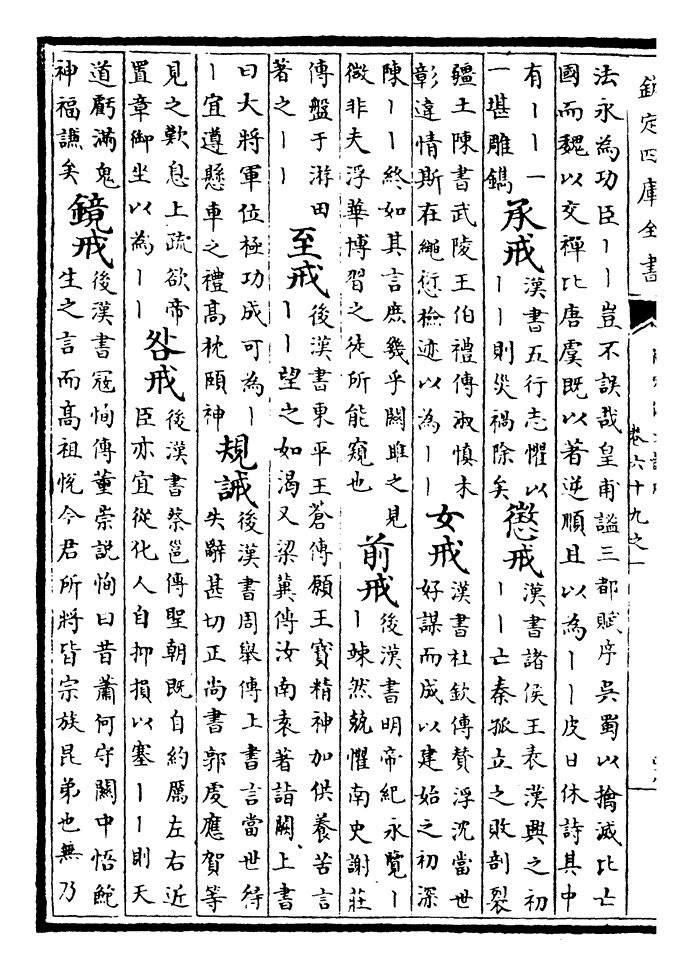 欽定四庫全書
卷六十九之一
法永為功臣丨丨豈不誤哉皇甫謐三都賦序吳蜀以擒滅比亡
國而魏以交禪比唐虞既以著逆順且以為丨丨皮日休詩其中
有丨丨丨一
一堪雕鐫
承戒
漢書五行志懼以
丨丨則災禍除矣
懲戒
漢書諸侯王表漢興之初
丨丨亡秦孤立之敗剖裂
疆王陳書武陵王伯禮傳淑慎未
彰違情斯在繩愆檢迹以為丨丨
女戒
漢書杜欽傳贊浮沉當世
好謀而成以建始之初深
陳丨丨終如其言庶幾乎關雎之見
微非夫浮華博習之徒所能窺也
前戒
後漢書明帝紀永覽丨
丨竦然兢懼南史謝莊
傳盤于游田
著之丨丨
至戒
後漢書東平王蒼傳願王寶精神加供養苦言
丨丨望之如渴又梁冀傳汝南袁著詣闕上書
曰大將軍位極功成可為丨
丨宜遵懸車之禮高枕頤神
規誡
後漢書周舉傳上書言當世得
失辭甚切正尚書郭虔應賀等
見之歎息上疏欲帝
置章御坐以為丨丨
咎戒
後漢書蔡邕傳聖朝既自約厲左右近
臣亦宜從化人自抑損以塞丨丨則天
道虧滿鬼
神福謙矣
鏡戒
後漢書寇恂傳董崇說恂曰昔蕭何守關中悟鮑
生之言而高祖悅今君所將皆宗族昆弟也無乃